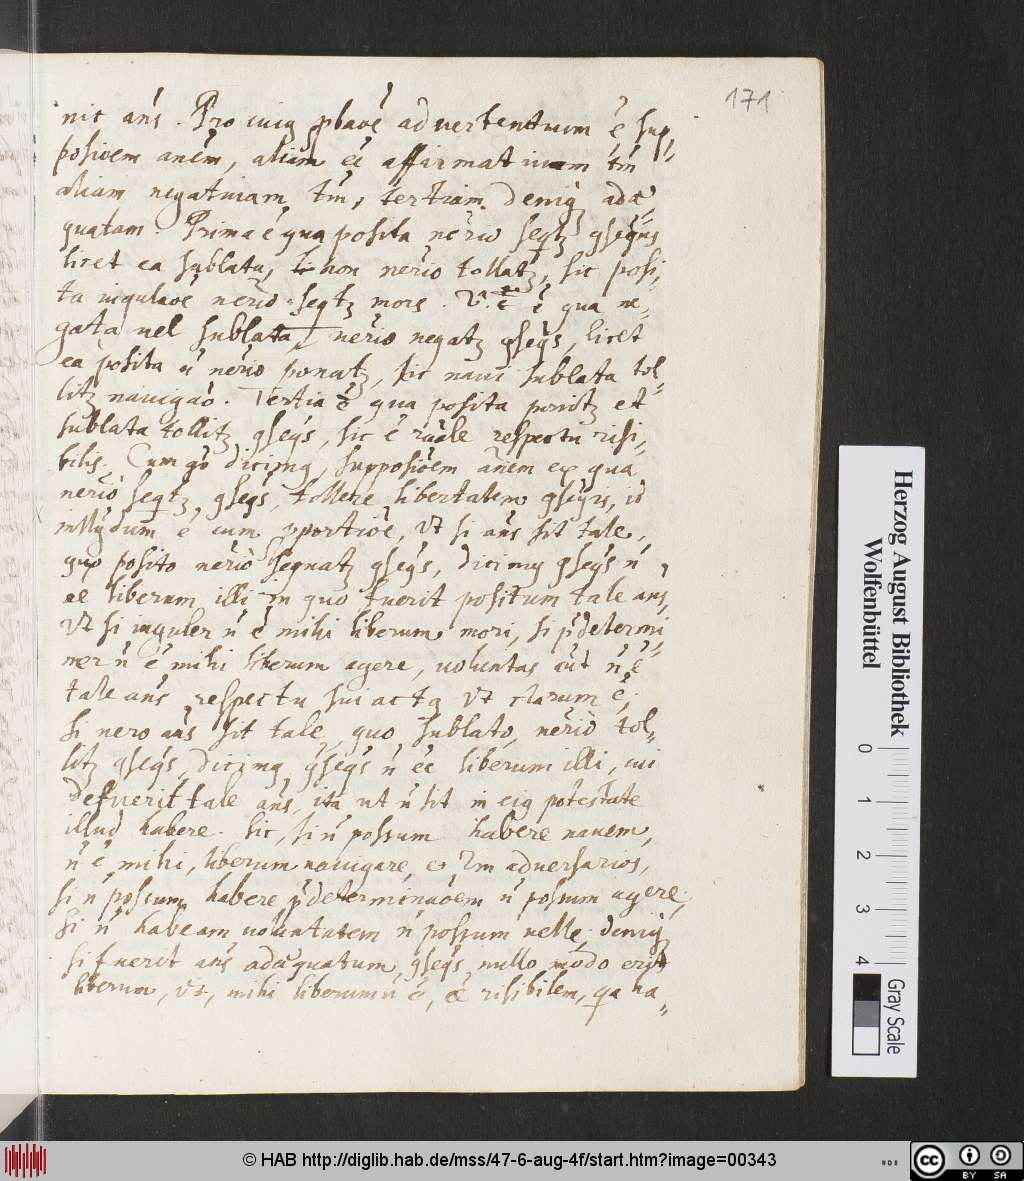 171
nit ans. Pro cuiq pbaōe advertentium ē, sup„
posiōem anēm, aliam eē affirmativam tm̄
aliam negativam tm̄, tertiam deniq adæ„
quatam. Prima ē qua posita nērio seqtz gseqns
licet ea sublata, non nērio tollatz, sic posi„
ta nērio seqtz mors. ē qua ne„
gata vel sublata, nērio negatz gseqs, licet
ea posita n̄ nērio ponatz, sic navi sublata tol„
litz navigāo. Tertia ē qua posita ponitz et
sublata tollitz gseqs, sic ē rāale respectu risi„
bilis. Cum gō dicimq, supposiōem anēm ex qua
nērio seqtz gseqs, tollere libertatem gseqtis, id
ē cum pportiōe, vt si ans sit tale,
quo posito nērio seqnatz gseqs, dicimq gseqs n̄
eē liberum illi in quo fuerit positum tale ans,
vt si n̄ ē mihi liberum mori, si pdetermi„
ner n̄ ē mihi liberum agere, voluntas āut n̄ ē
tale ans respectu sui actq vt clarum ē.
si vero ans sit tale, quo sublato, nērio tol„
litz gseqs, dicimq gseqs n̄ eē liberum illi, cui
defuerit tale ans, ita ut n̄ sit in eiq potestate
illud habere. sic, si n̄ possum habere navem,
n̄ ē mihi, liberum navigare, et adversarios,
si n̄ possum habere pdeterminaōem n̄ possum agere,
si n̄ habeam voluntatem n̄ possum velle. deniq
si fuerit ans adæquatum, gseqs, nullo modo erit
liberum, vt, mihi liberum n̄ ē, eē risibilem, qa na„
Herzog August Bibliothek
Wolfenbüttel
0 1 2 3 4
Gray Scale
© HAB http://diglib.hab.de/mss/47-6-aug-4f/start.htm?image=00343
HAB
cc BY SA